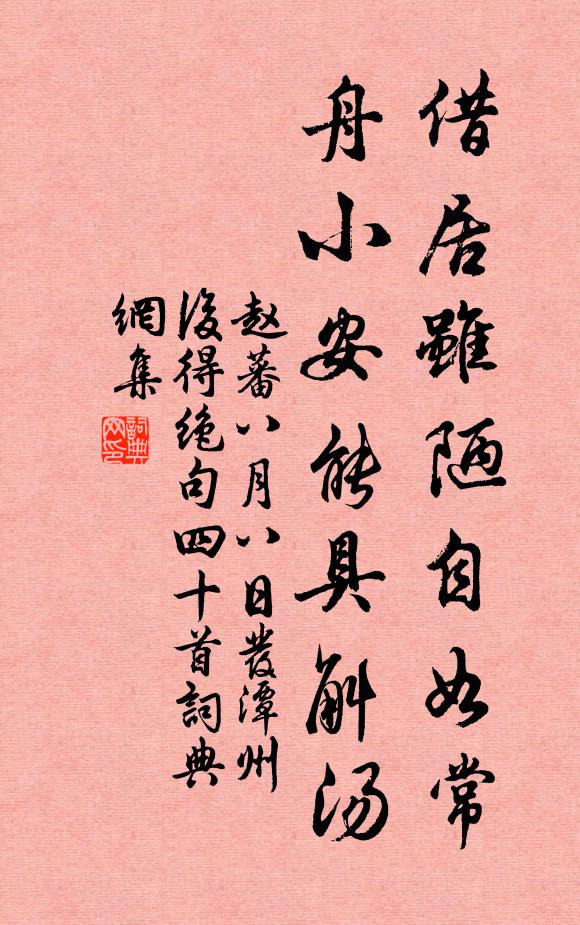 借居雖陋自如常
舟小安能具斛汤
赵蕃八月八日發潭州
後得絶句四十首詞典
網集
詞典
网印